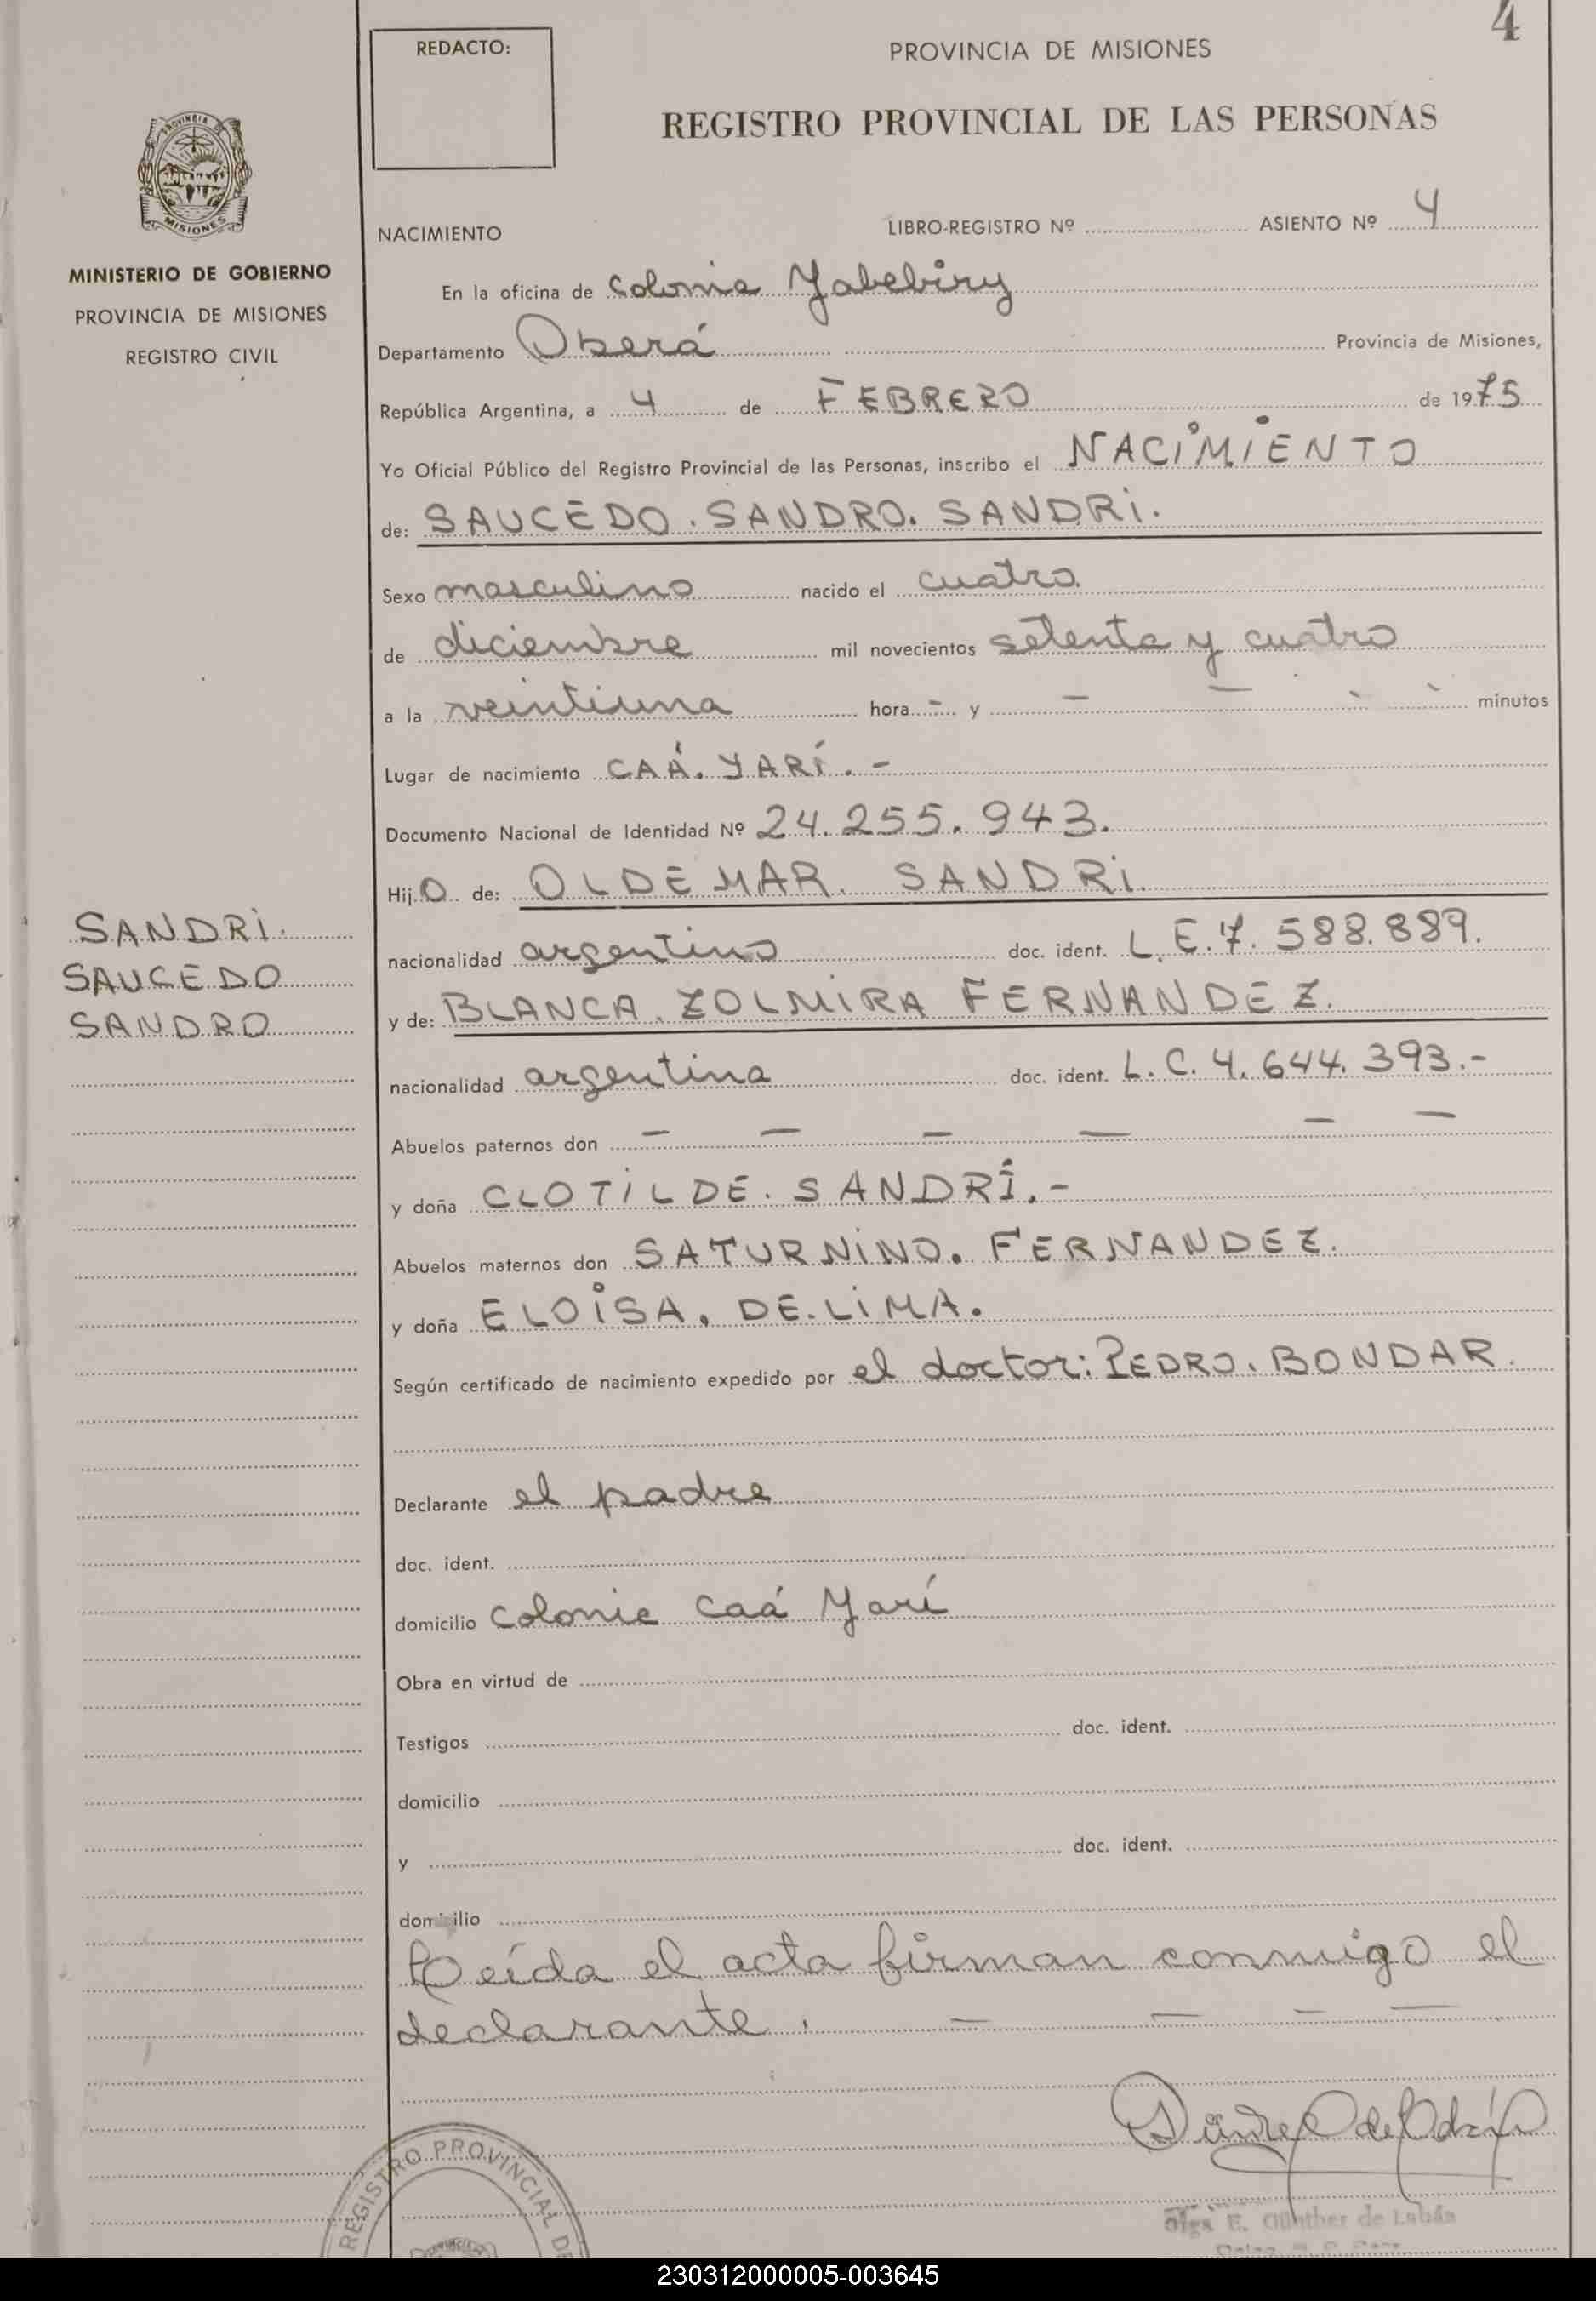 4
REDACTO:
PROVINCIA DE MISIONES
REGISTRO PROVINCIAL DE LAS PERSONAS
PROVINCIA
MISIONES
MINISTERIO DE GOBIERNO
PROVINCIA DE MISIONES
REGISTRO CIVIL
NACIMIENTO LIBRO-REGISTRO Nº ASIENTO Nº 4
En la oficina de Colonia Yabebiry
Departamento Oberá Provincia de Misiones,
República Argentina, a 4 de FEBRERO de 1975
Yo Oficial Público del Registro Provincial de las Personas, inscribo el NACIMIENTO
de: SAUCEDO. SANDRO. SANDRI.
Sexo masculino nacido el cuatro
de diciembre mil novecientos setenta y cuatro
a la veintiuna hora - y - - - - minutos
Lugar de nacimiento CAÁ. YARÍ. -
Documento Nacional de Identidad Nº 24.255.943.
Hijo de: OLDEMAR. SANDRI.
SANDRI.
SAUCEDO
SANDRO
nacionalidad argentino doc. ident. L.E. 7.588.889.
y de: BLANCA. ZOLMIRA FERNANDEZ.
nacionalidad argentina doc. ident. L.C. 4.644.393.-
Abuelos paternos don - - - - - -
y doña CLOTILDE. SANDRI.-
Abuelos maternos don SATURNINO. FERNANDEZ.
y doña ELOISA. DE.LIMA.
Según certificado de nacimiento expedido por el doctor: PEDRO. BONDAR.
Declarante el padre
doc. ident.
domicilio Colonia Caá Yarí
Obra en virtud de
Testigos doc. ident.
domicilio
y doc. ident.
domicilio
Leída el acta firman conmigo el
declarante. - - - -
REGISTRO PROVINCIAL DE
Olga E. Günther de Lubán
230312000005-003645